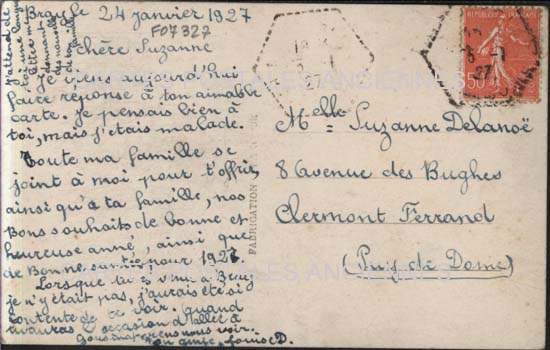 Braule 24 janvier 1927
F07327
Chère Suzanne
Je viens aujourd'hui
faire réponse à ton aimable
carte. Je pensais bien à
toi, mais j'étais malade.
Toute ma famille se
joint à moi pour t'offrir,
ainsi qu'à ta famille, nos
Bons souhaits de bonne et
heureuse anné, ainsi que
de Bonne santé pour 1927.
Lorsque tu es venu à
je n'y était pas, j'aurais été si
contente de te voir. Quand
tu auras l'occasion d'aller à
nous voir.
Ton amie Louise D.
J'attend de
toi une longue
lettre
RÉPUBLIQUE FRANÇAISE
50
27
FABRICATION
Melle Suzanne Delanoë
8 avenue des Bughes
Clermont Ferrand
(Puy de Dome)